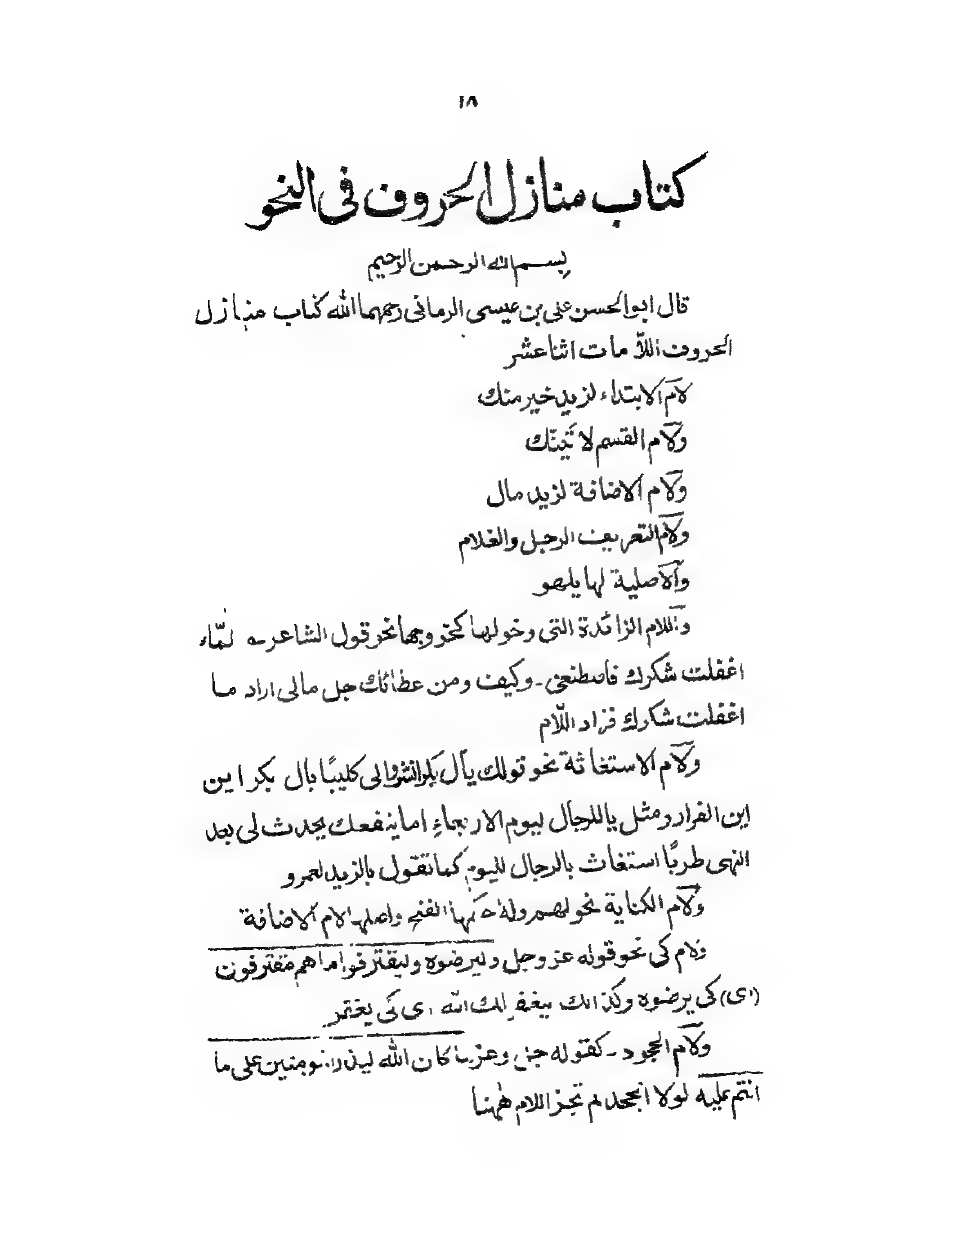 ١٨
كتاب منازل الحروف فى النحو
بسم الله الرحمن الرحيم
قال ابوالحسن على بن عيسى الرمانى رحمهما الله كتاب منازل
الحروف اللآمات اثنا عشر
لآم الابتداء لزيد خير منك
ولآم القسم لا تينّك
ولآم الاضافة لزيد مال
ولآم التعريف الرجل والغلام
والآصلية لها يلهو
واللام الزائدة التى دخولها كخروجها نحو قول الشاعر ـه لمّاء
اغفلت شكرك فاصطنعنى ـ وكيف ومن عطائك جل مالى اراد ما
اغفلت شكرك فزاد اللّام
ولآم الاستغاثة نحو قولك يآل بكر انشروالى كليبًا بال بكر اين
اين الفرار ومثل ياللرجال ليوم الاربعاءِ اما ينفعك يحدث لى بعد
النهى طربًا استغاث بالرجال لليوم كما تقول بالزيد لعمرو
ولآم الكناية نحو لهم وله حكمها الفتح واصلها لام الاضافة
ولام كى نحو قوله عز وجل وليرضوه وليقترفوا ما هم مقترفون
(اى) كى يرضوه وكذالك ليغفر لك الله اى كى يغتفر
ولآم الجحود ـ كقوله جل وعز ما كان الله ليذر المومنين على ما
انتم عليه لولا الجحد لم تجز اللام ههنا